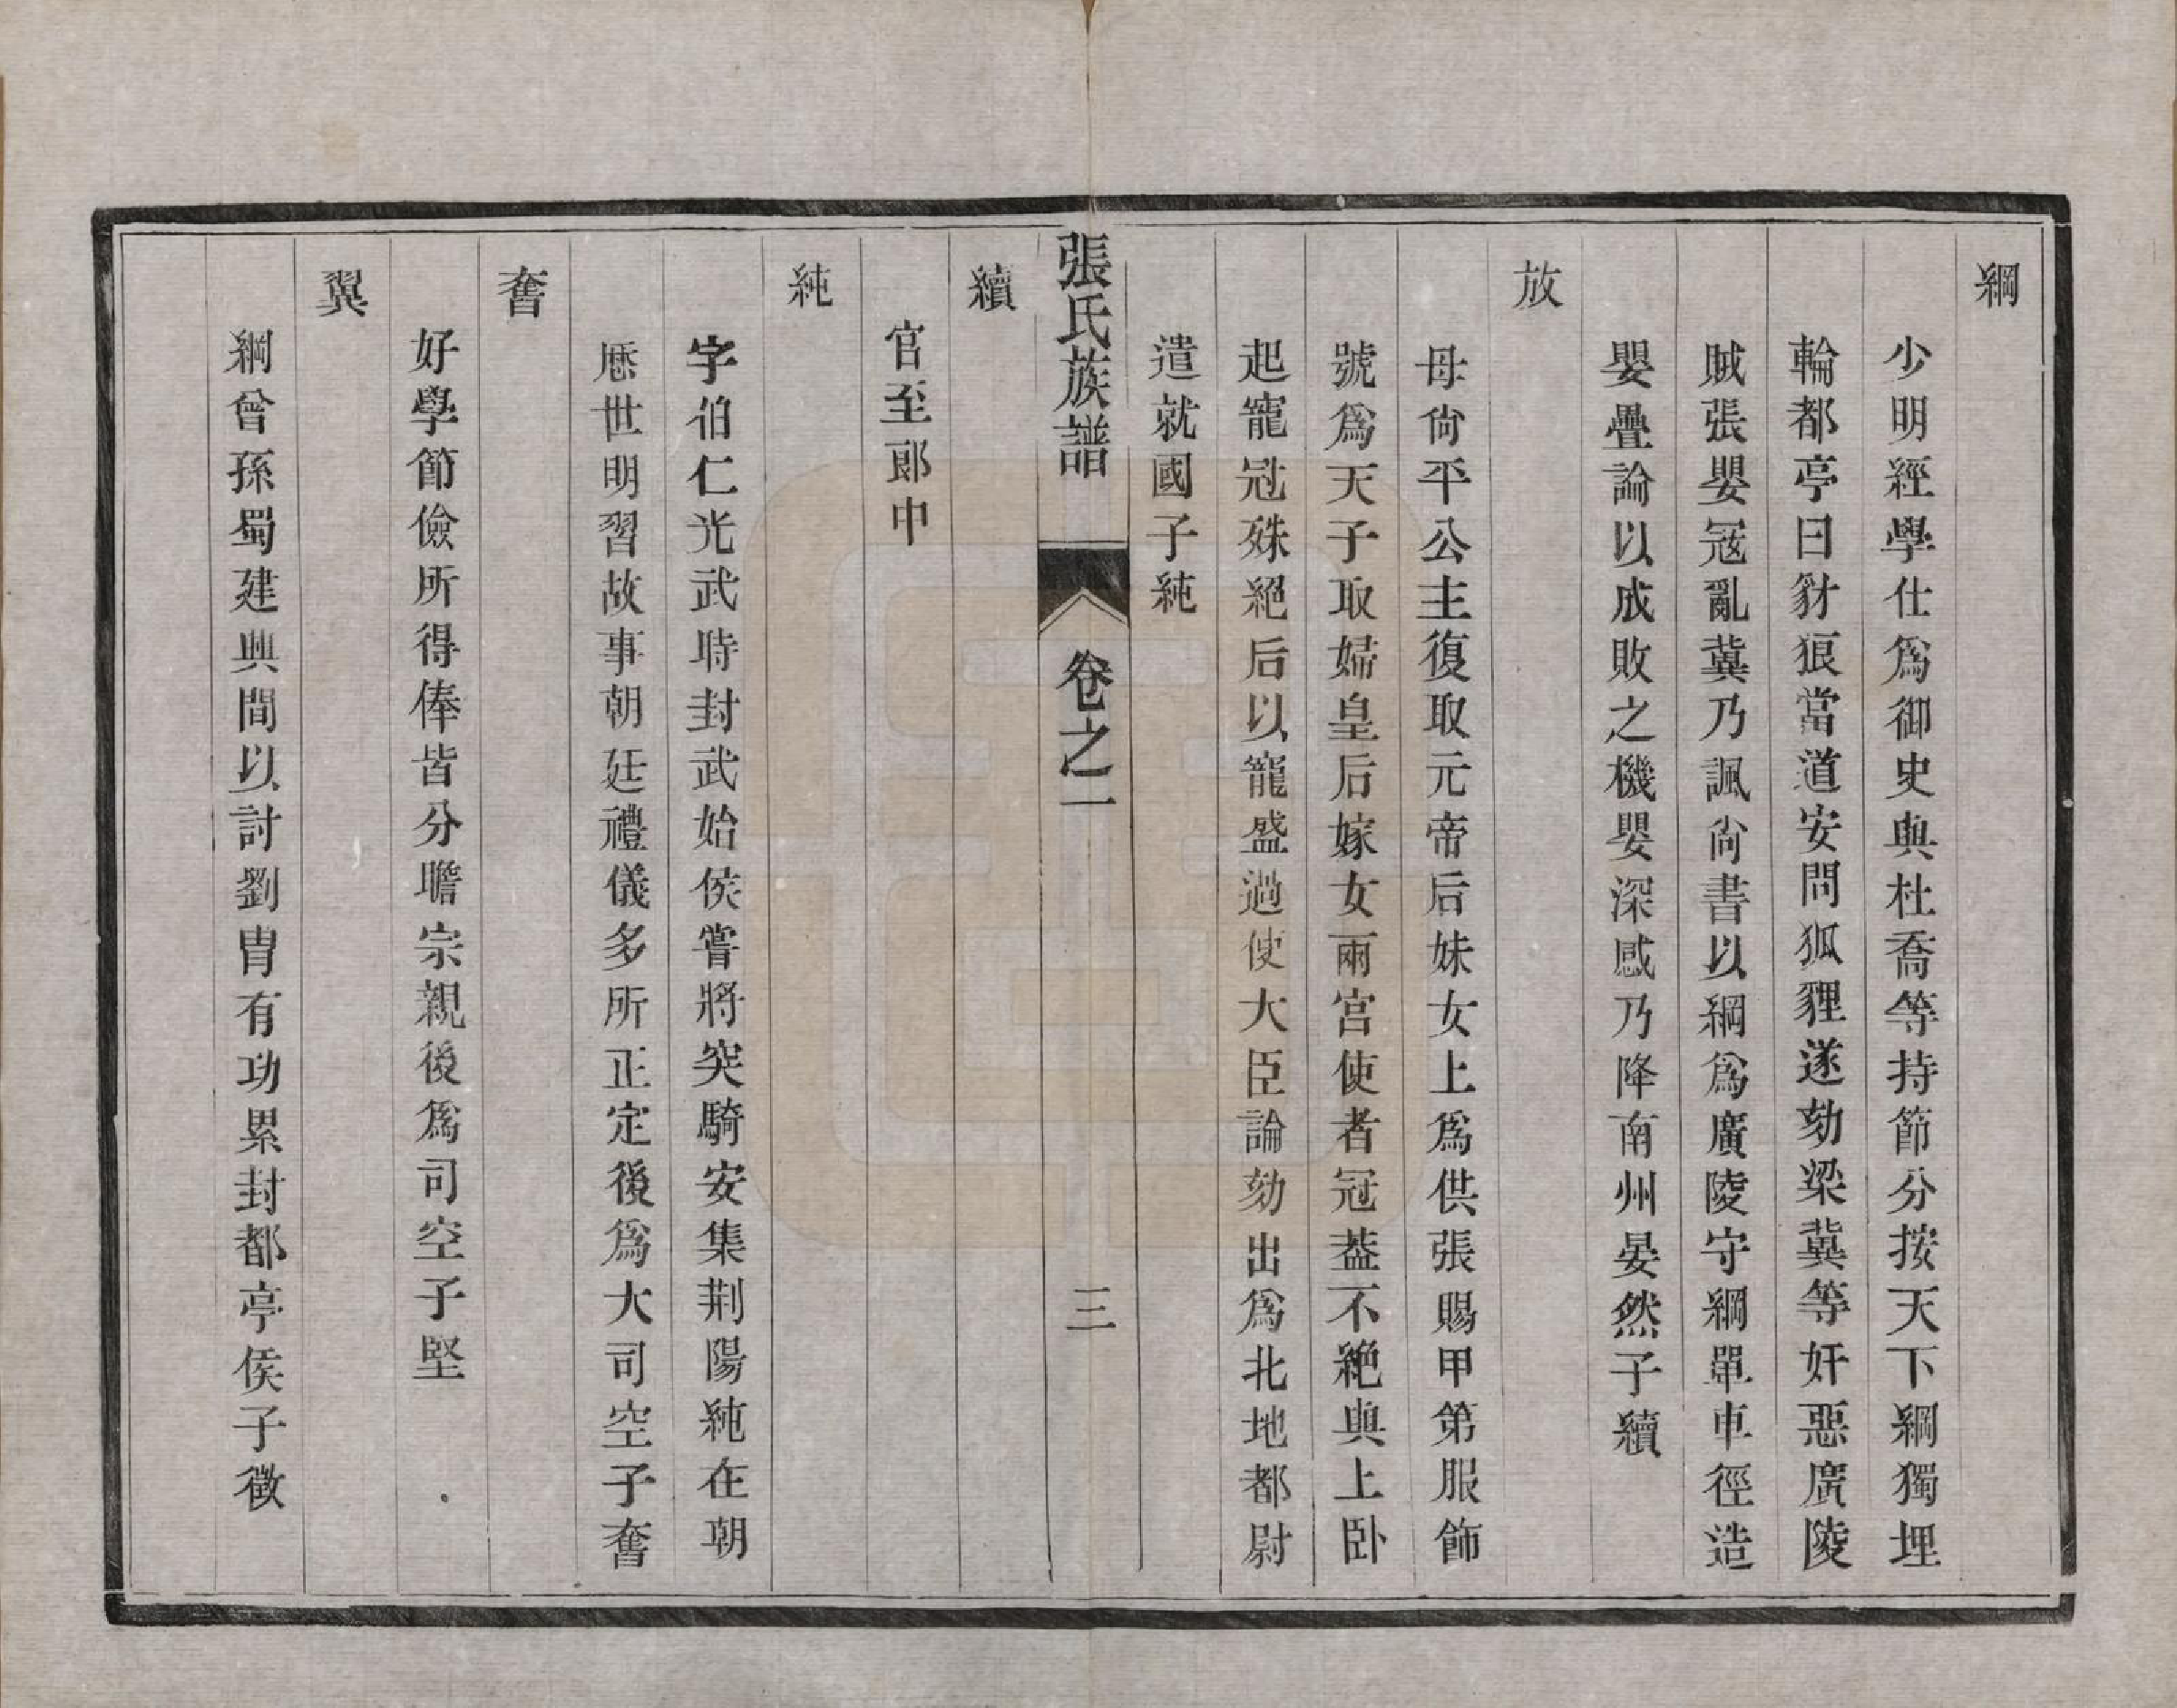 綱
少明經學仕爲御史與杜喬等持節分按天下綱獨埋
輪都亭曰豺狼當道安問狐狸遂劾梁冀等奸惡廣陵
賊張嬰冦亂冀乃諷尙書以綱爲廣陵守綱單車徑造
嬰壘論以成敗之機嬰深感乃降南州晏然子續
放
母尙平公主復取元帝后妹女上爲供張賜甲第服飾
號爲天子取婦皇后嫁女兩宫使者冠葢不絶與上卧
起寵冠殊絕后以寵盛過使大臣論劾出爲北地都尉
遣就國子純
張氏族譜
卷之一
三
續
官至郞中
純
字伯仁光武時封武始侯嘗將突騎安集荆陽純在朝
厯世明習故事朝廷禮儀多所正定後爲大司空子奮
奮
好學節儉所得俸皆分贍宗親後爲司空子堅
翼
綱曾孫蜀建興間以討劉胄有功累封都亭侯子徵